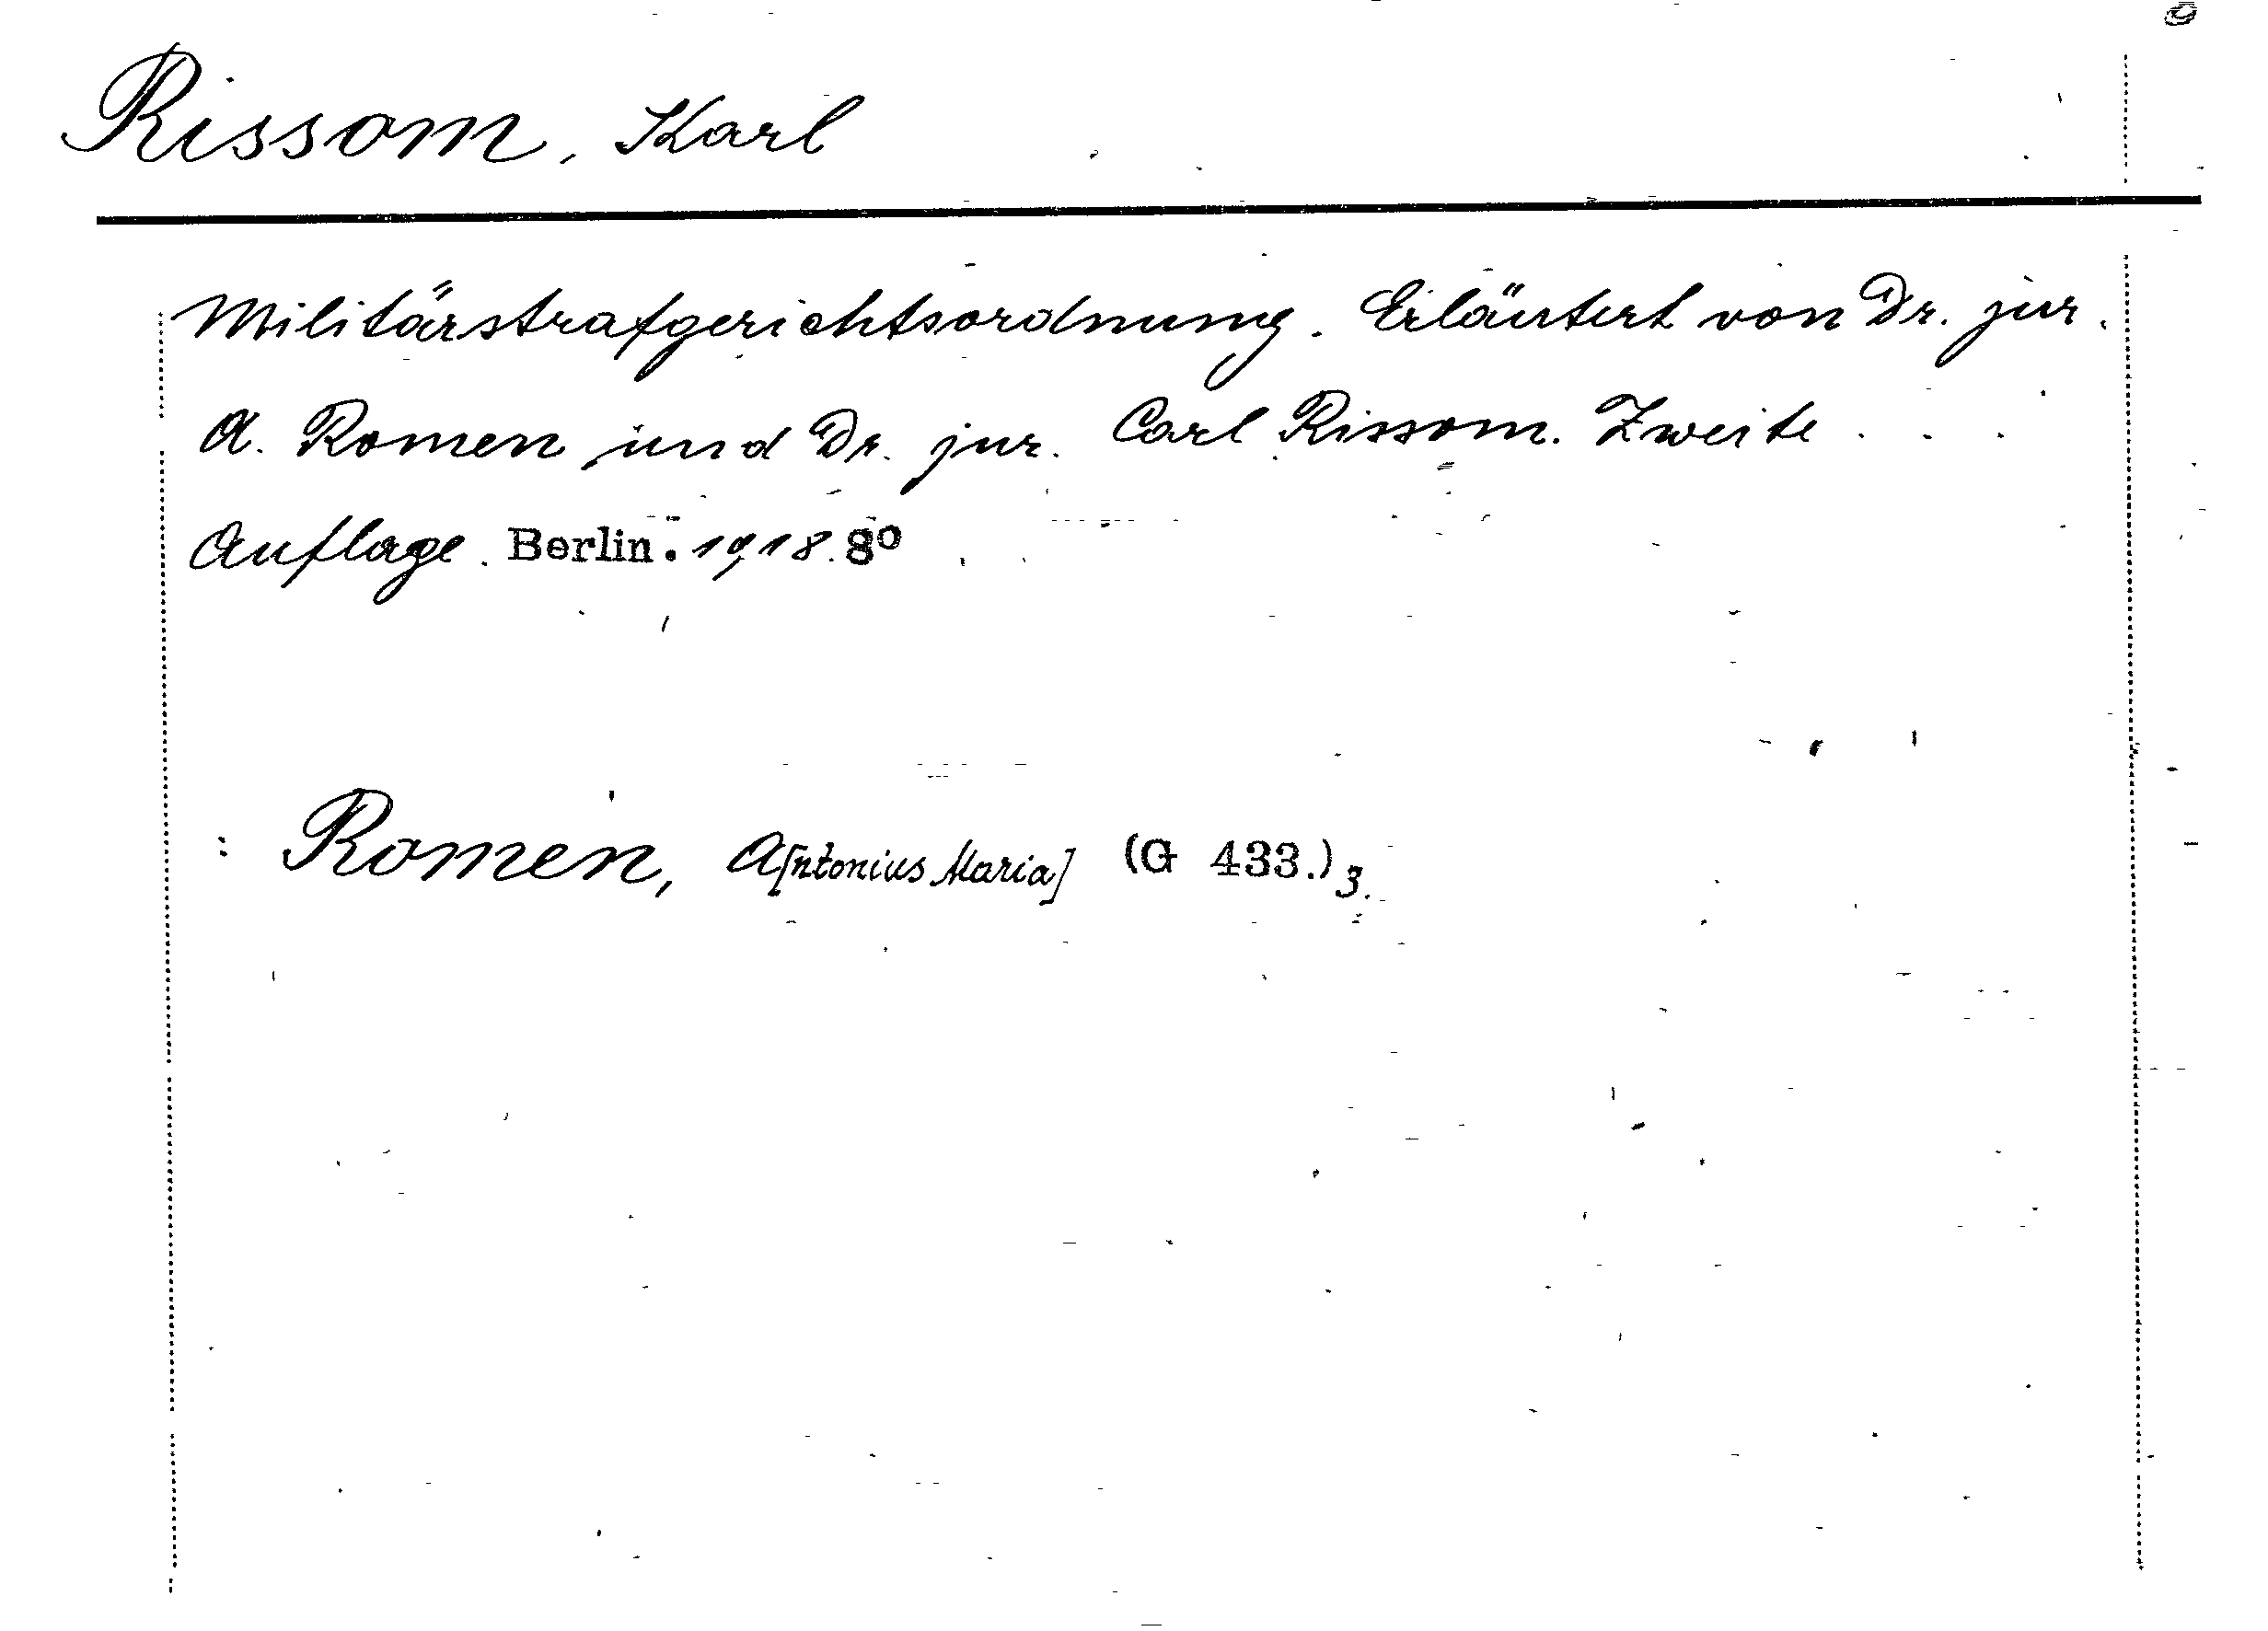 Rissom, Karl
Militärstrafgerichtsordnung. Erläutert von Dr. jur.
A. Romen und Dr. jur. Carl Rissom. Zweite . . .
Auflage. Berlin: 1918. 8º
: Romen, A[ntonius Maria] (G 433.) 3.